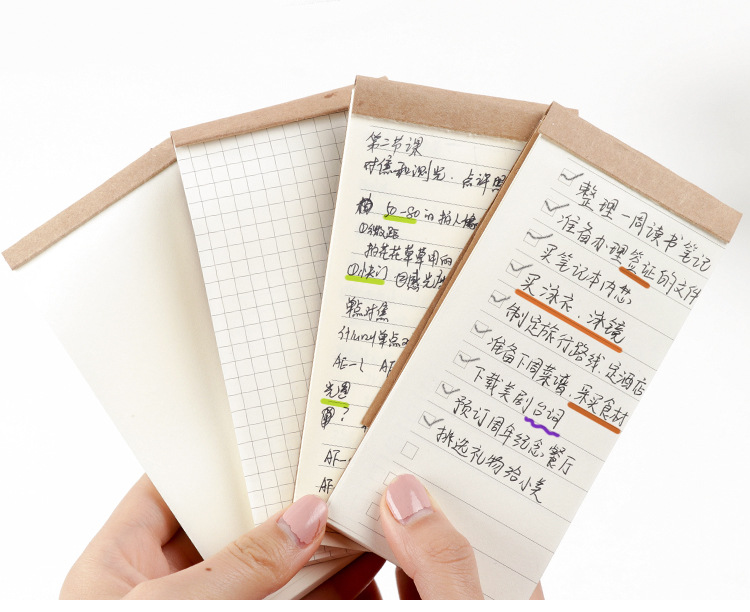 第二节课
对焦和测光.点评照
50-80mm拍人像
①微距
拍花花草草用的
①快门 ②感光度
单点对焦
单点
AF-C AF
光圈
?
AF-
AF
整理一周读书笔记
准备办理签证的文件
买笔记本内芯
买泳衣、泳镜
制定旅行路线,定酒店
准备下周菜谱,采买食材
下载美剧台词
预订周年纪念餐厅
挑选礼物给小美